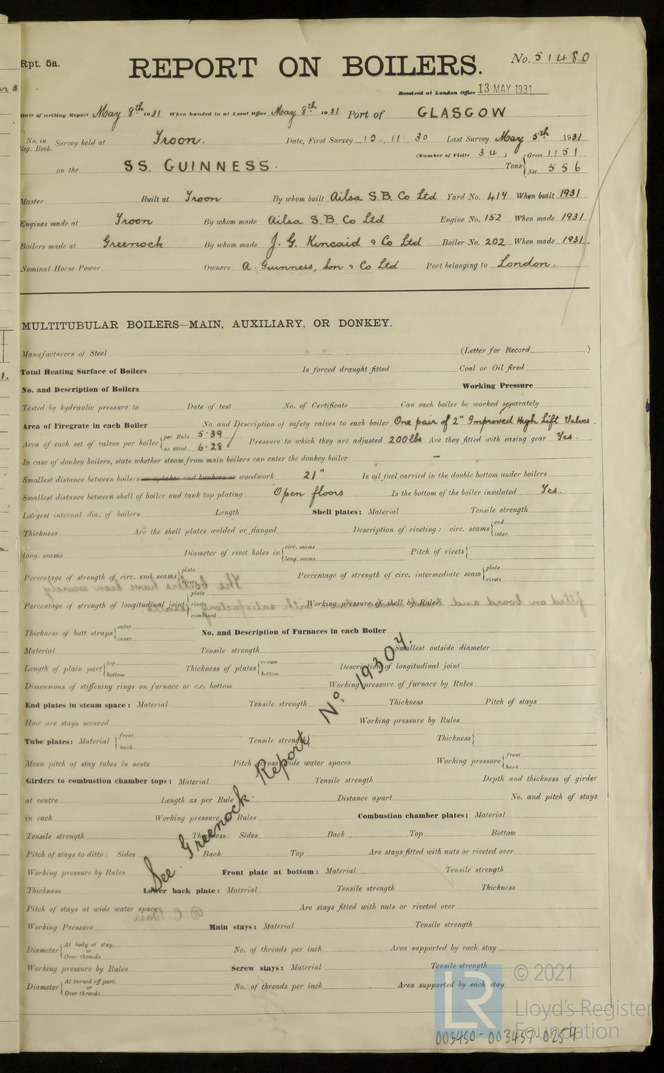 Rpt. 5a.
No. 51480
REPORT ON BOILERS.
Received at London Office 13 MAY 1931
Date of writing Report May 8th 1931 When handed in at Local Office May 8th 1931 Port of GLASGOW
No. in Reg. Book. Survey held at Troon. Date, First Survey 12. 11. 30 Last Survey May 5th 1931
on the SS. GUINNESS. (Number of Visits 34) Tons { Gross 1151 Net 556
Master Built at Troon By whom built Ailsa S.B. Co Ltd Yard No. 414 When built 1931
Engines made at Troon By whom made Ailsa S.B. Co Ltd Engine No. 152 When made 1931
Boilers made at Greenock By whom made J. G. Kincaid & Co Ltd Boiler No. 202 When made 1931
Nominal Horse Power Owners A. Guinness, Son & Co Ltd Port belonging to London.
MULTITUBULAR BOILERS—MAIN, AUXILIARY, OR DONKEY.
Manufacturers of Steel (Letter for Record )
Total Heating Surface of Boilers Is forced draught fitted Coal or Oil fired
No. and Description of Boilers Working Pressure
Tested by hydraulic pressure to Date of test No. of Certificate Can each boiler be worked separately
Area of Firegrate in each Boiler No. and Description of safety valves to each boiler One pair of 2" Improved High Lift Valves.
Area of each set of valves per boiler { per Rule 5.39 as fitted 6.28 Pressure to which they are adjusted 200 lbs Are they fitted with easing gear Yes.
In case of donkey boilers, state whether steam from main boilers can enter the donkey boiler –
Smallest distance between boilers or uptakes and bunkers or woodwork 21" Is oil fuel carried in the double bottom under boilers
Smallest distance between shell of boiler and tank top plating Open floors Is the bottom of the boiler insulated Yes.
Largest internal dia. of boilers Length Shell plates: Material Tensile strength
Thickness Are the shell plates welded or flanged Description of riveting: circ. seams { end inter.
long. seams Diameter of rivet holes in { circ. seams long. seams Pitch of rivets {
Percentage of strength of circ. end seams { plate rivets Percentage of strength of circ. intermediate seam { plate rivets
Percentage of strength of longitudinal joint { plate rivets combined Working pressure of shell by Rules
Thickness of butt straps { outer inner No. and Description of Furnaces in each Boiler
Material Tensile strength Smallest outside diameter
Length of plain part { top bottom Thickness of plates { crown bottom Description of longitudinal joint
Dimensions of stiffening rings on furnace or c.c. bottom Working pressure of furnace by Rules
End plates in steam space: Material Tensile strength Thickness Pitch of stays
How are stays secured Working pressure by Rules
Tube plates: Material { front back Tensile strength Thickness {
Mean pitch of stay tubes in nests Pitch across wide water spaces Working pressure { front back
Girders to combustion chamber tops: Material Tensile strength Depth and thickness of girder
at centre Length as per Rule Distance apart No. and pitch of stays
in each Working pressure by Rules Combustion chamber plates: Material
Tensile strength Thickness: Sides Back Top Bottom
Pitch of stays to ditto: Sides Back Top Are stays fitted with nuts or riveted over
Working pressure by Rules Front plate at bottom: Material Tensile strength
Thickness Lower back plate: Material Tensile strength Thickness
Pitch of stays at wide water space Are stays fitted with nuts or riveted over
Working Pressure Main stays: Material Tensile strength
Diameter { At body of stay, or Over threads No. of threads per inch Area supported by each stay
Working pressure by Rules Screw stays: Material Tensile strength
Diameter { At turned off part, or Over threads No. of threads per inch Area supported by each stay
See Greenock Report No 19304.
LR
© 2021
Lloyd's Register
Foundation
003450-003457-0254